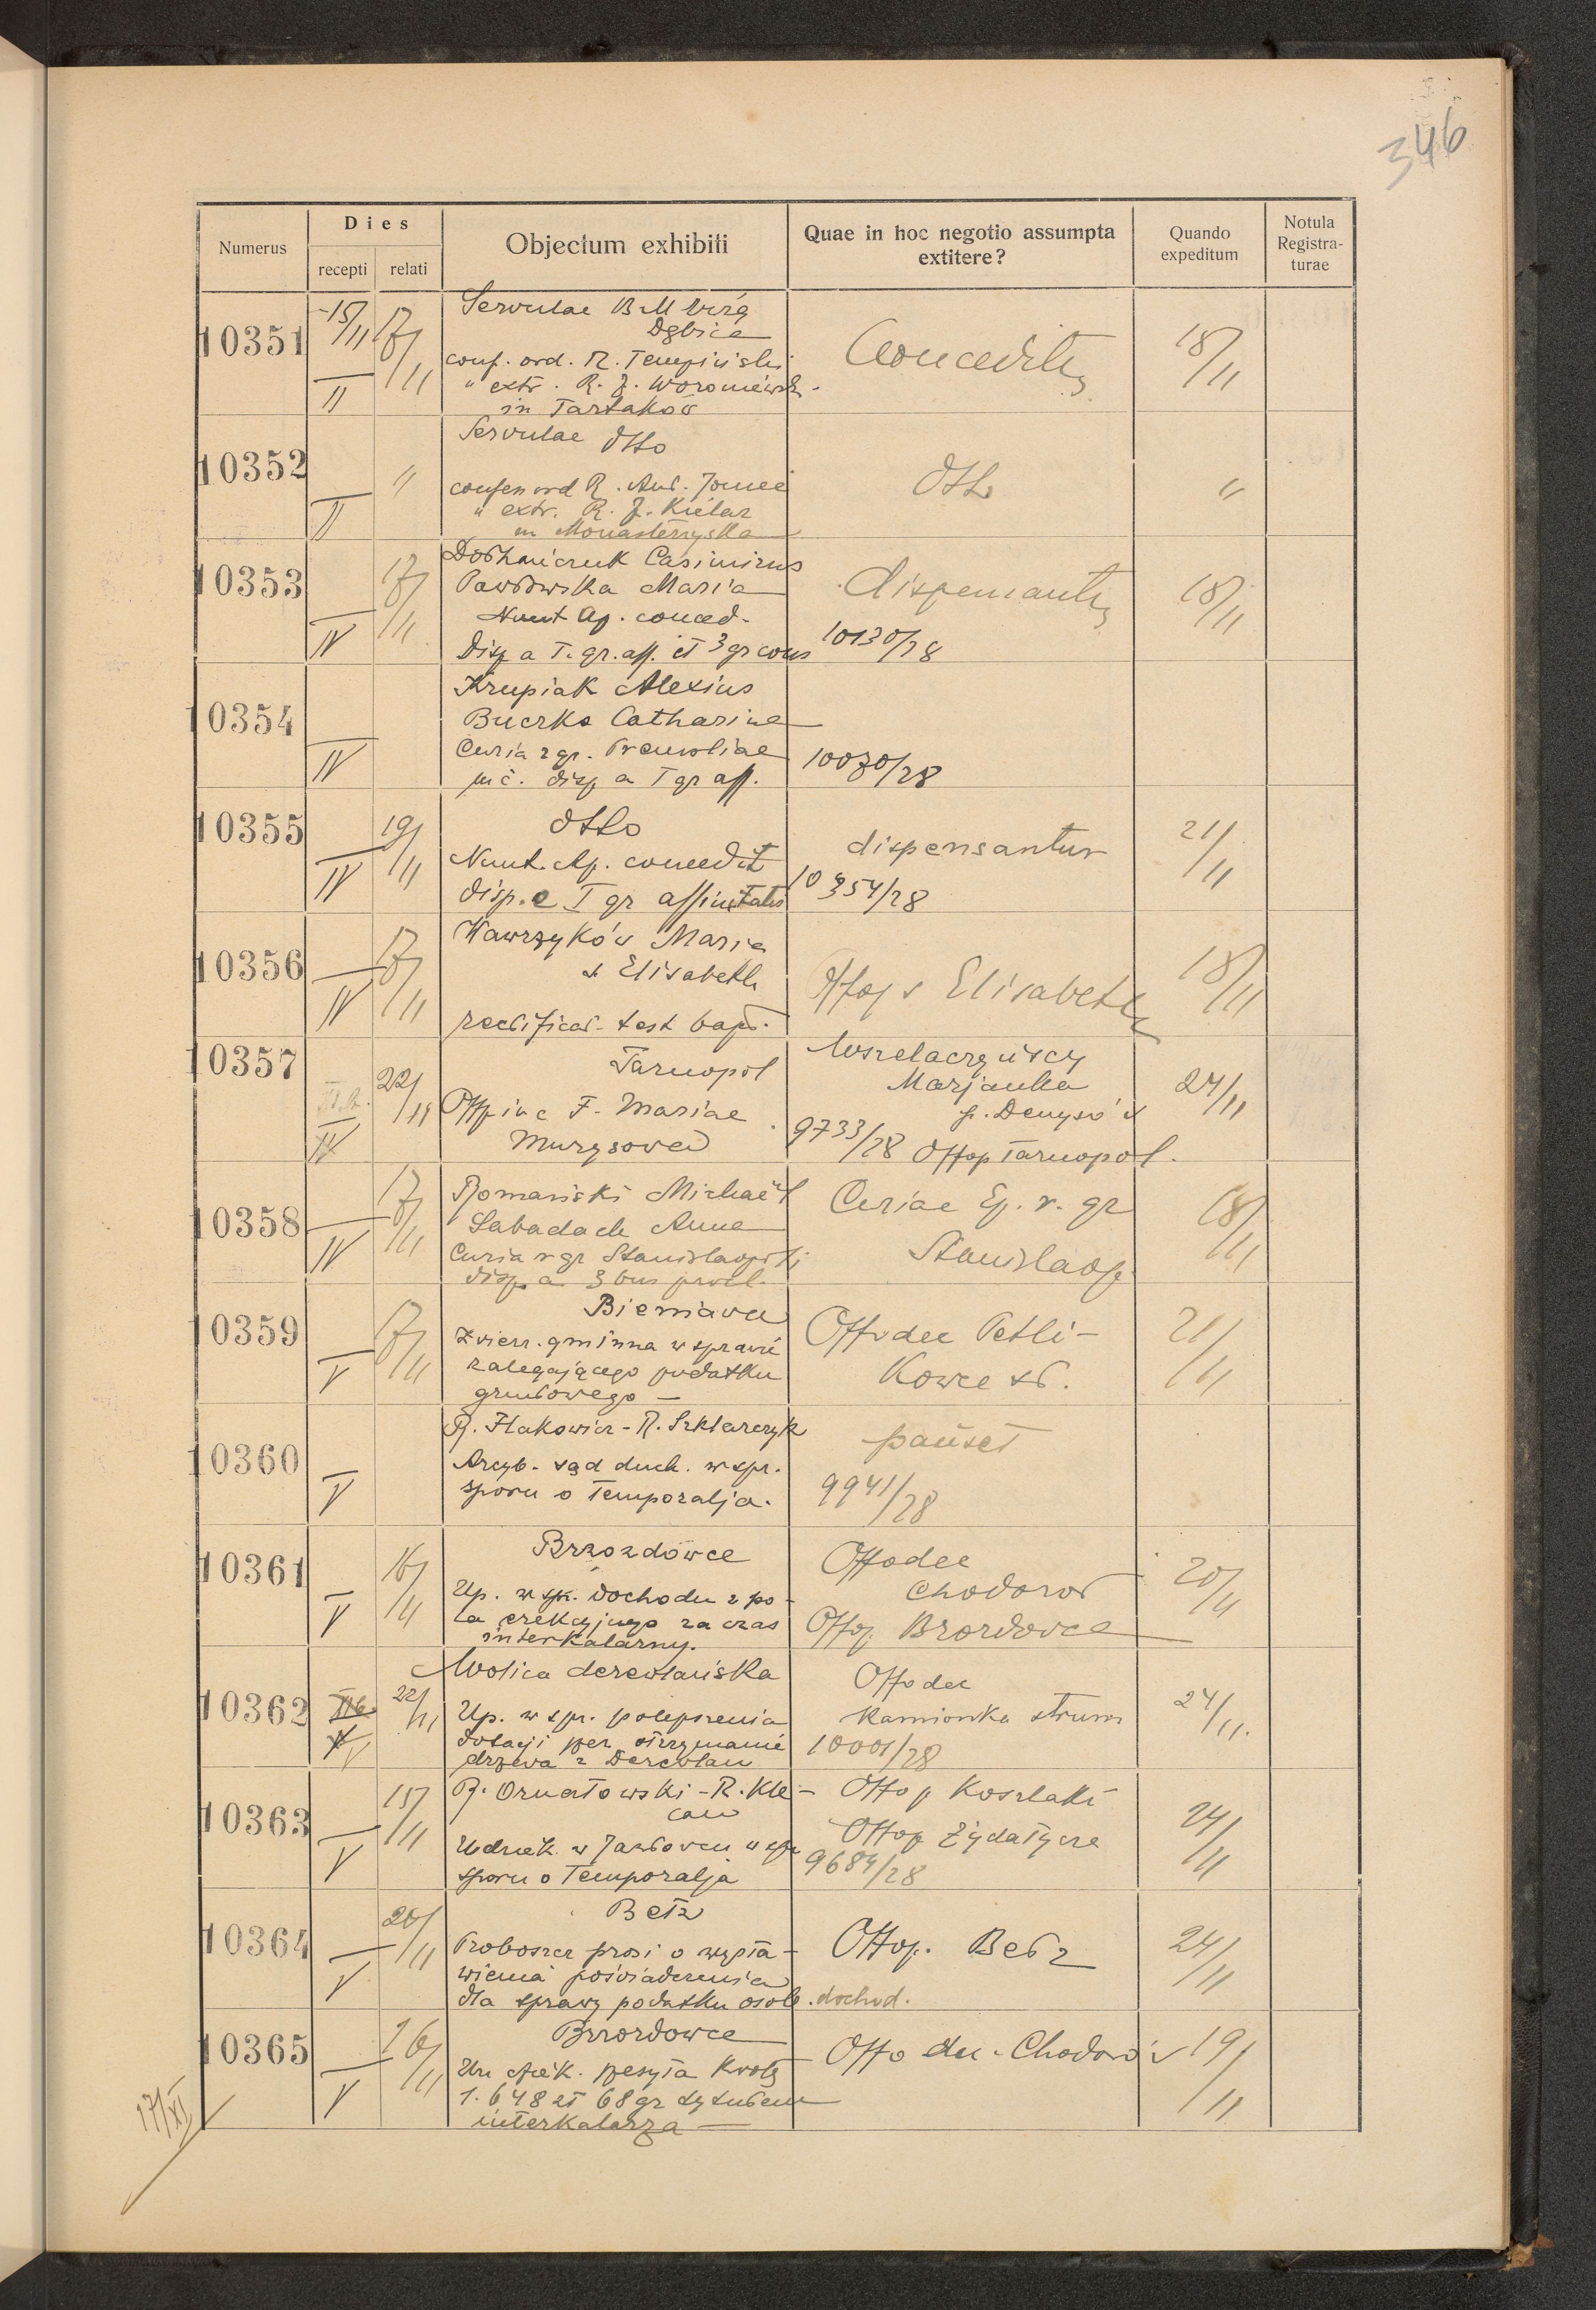 346
Numerus
Dies
recepti
relati
Objectum exhibiti
Quae in hoc negotio assumpta
extitere?
Quando
expeditum
Notula
Registra-
turae
10351
15/11
17/11
II
Servulae B M Virg
Dębica
conf. ord. R.
" extr. R. J.
in Tartaków
Conceditur
18/11
10352
"
II
Servulae dtto
ord R. Ant.
" extr. R. J. Kielar
in Monasterzyska
dtto
"
10353
17/11
IV
Casimirus
Pawłowska Maria
Nunt Ap. conced.
Disp a I. gr. aff. et 3 gr cons
dispensantur
10130/28
18/11
10354
IV
Krupiak Alexius
Buczko Catharina
Curia r gr. Premisliae
disp a I gr aff.
10030/28
10355
19/11
IV
dtto
Nunt. Ap. concedit
disp. a I gr affinitatis
dispensantur
10354/28
21/11
10356
17/11
IV
Wawrzyków Maria
s Elisabeth
rectificat. test bapt.
Offop s Elisabeth
18/11
10357
22/11
IV
Tarnopol
F. Mariae
Wszelaczyńscy
Marjanka
p. Denysów
9733/28 Offop Tarnopol.
24/11
10358
17/11
IV
Romański Michaël
Labadach Anna
Curia r gr Stanislaop.
disp a 3 bus procl.
Curiae Ep. r. gr
Stanislaop
18/11
10359
17/11
V
Bieniawa
Zwierz. gminna w sprawie
zalegającego podatku
gruntowego —
Offo dec Petli-
kowce st.
21/11
10360
V
R. Ilakowicz - R. Szklarczyk
Arcyb. sąd duch. w spr.
sporu o temporalja.
pariset
9941/28
10361
16/11
V
Brzozdówce
Up. w spr. dochodu z po-
la erekcyjnego za czas
interkalarny.
Offo dec
Chodorów
Offop. Brzozdowce
20/11
10362
22/11
V
Wolica derewlańska
Up. w spr. polepszenia
dotacji przez otrzymanie
drzewa z Derewlan
Offo dec
Kamionka strum
10001/28
24/11.
10363
15/11
V
R. Ornatowski - R. Kle-
can
w Jazłowcu w spr
sporu o temporalja
Offop Koszlaki
Offop Żydatycze
9684/28
24/11
10364
20/11
V
Bełz
Proboszcz prosi o wysta-
wienia poświadczenia
dla sprawy podatku osob. dochod.
Offop. Bełz
24/11
10365
16/11
V
Brzozdowce
przesyła kwotę
1.648 zł 68 gr tytułem
interkalarza —
Offo dec. Chodorów
19/11
17/XI